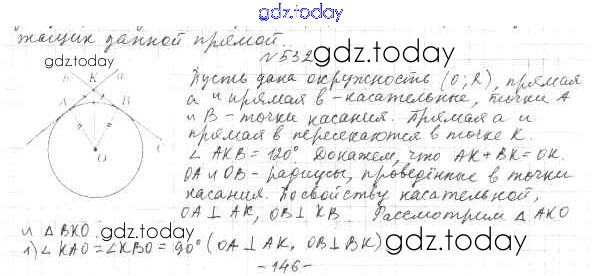 gdz.today
жащих данной прямой.
№532
gdz.today
Пусть дана окружность (O; R), прямая
a и прямая b - касательные, точки A
и B - точки касания. Прямая a и
прямая b пересекаются в точке K.
∠ AKB = 120°. Докажем, что AK + BK = OK.
OA и OB - радиусы, проведённые в точки
касания. По свойству касательной,
OA ⊥ AK, OB ⊥ KB. Рассмотрим △ AKO
и △ BKO.
b K a
A B
O C
gdz.today
1) ∠ KAO = ∠ KBO = 90° (OA ⊥ AK, OB ⊥ BK)
gdz.today
-146-